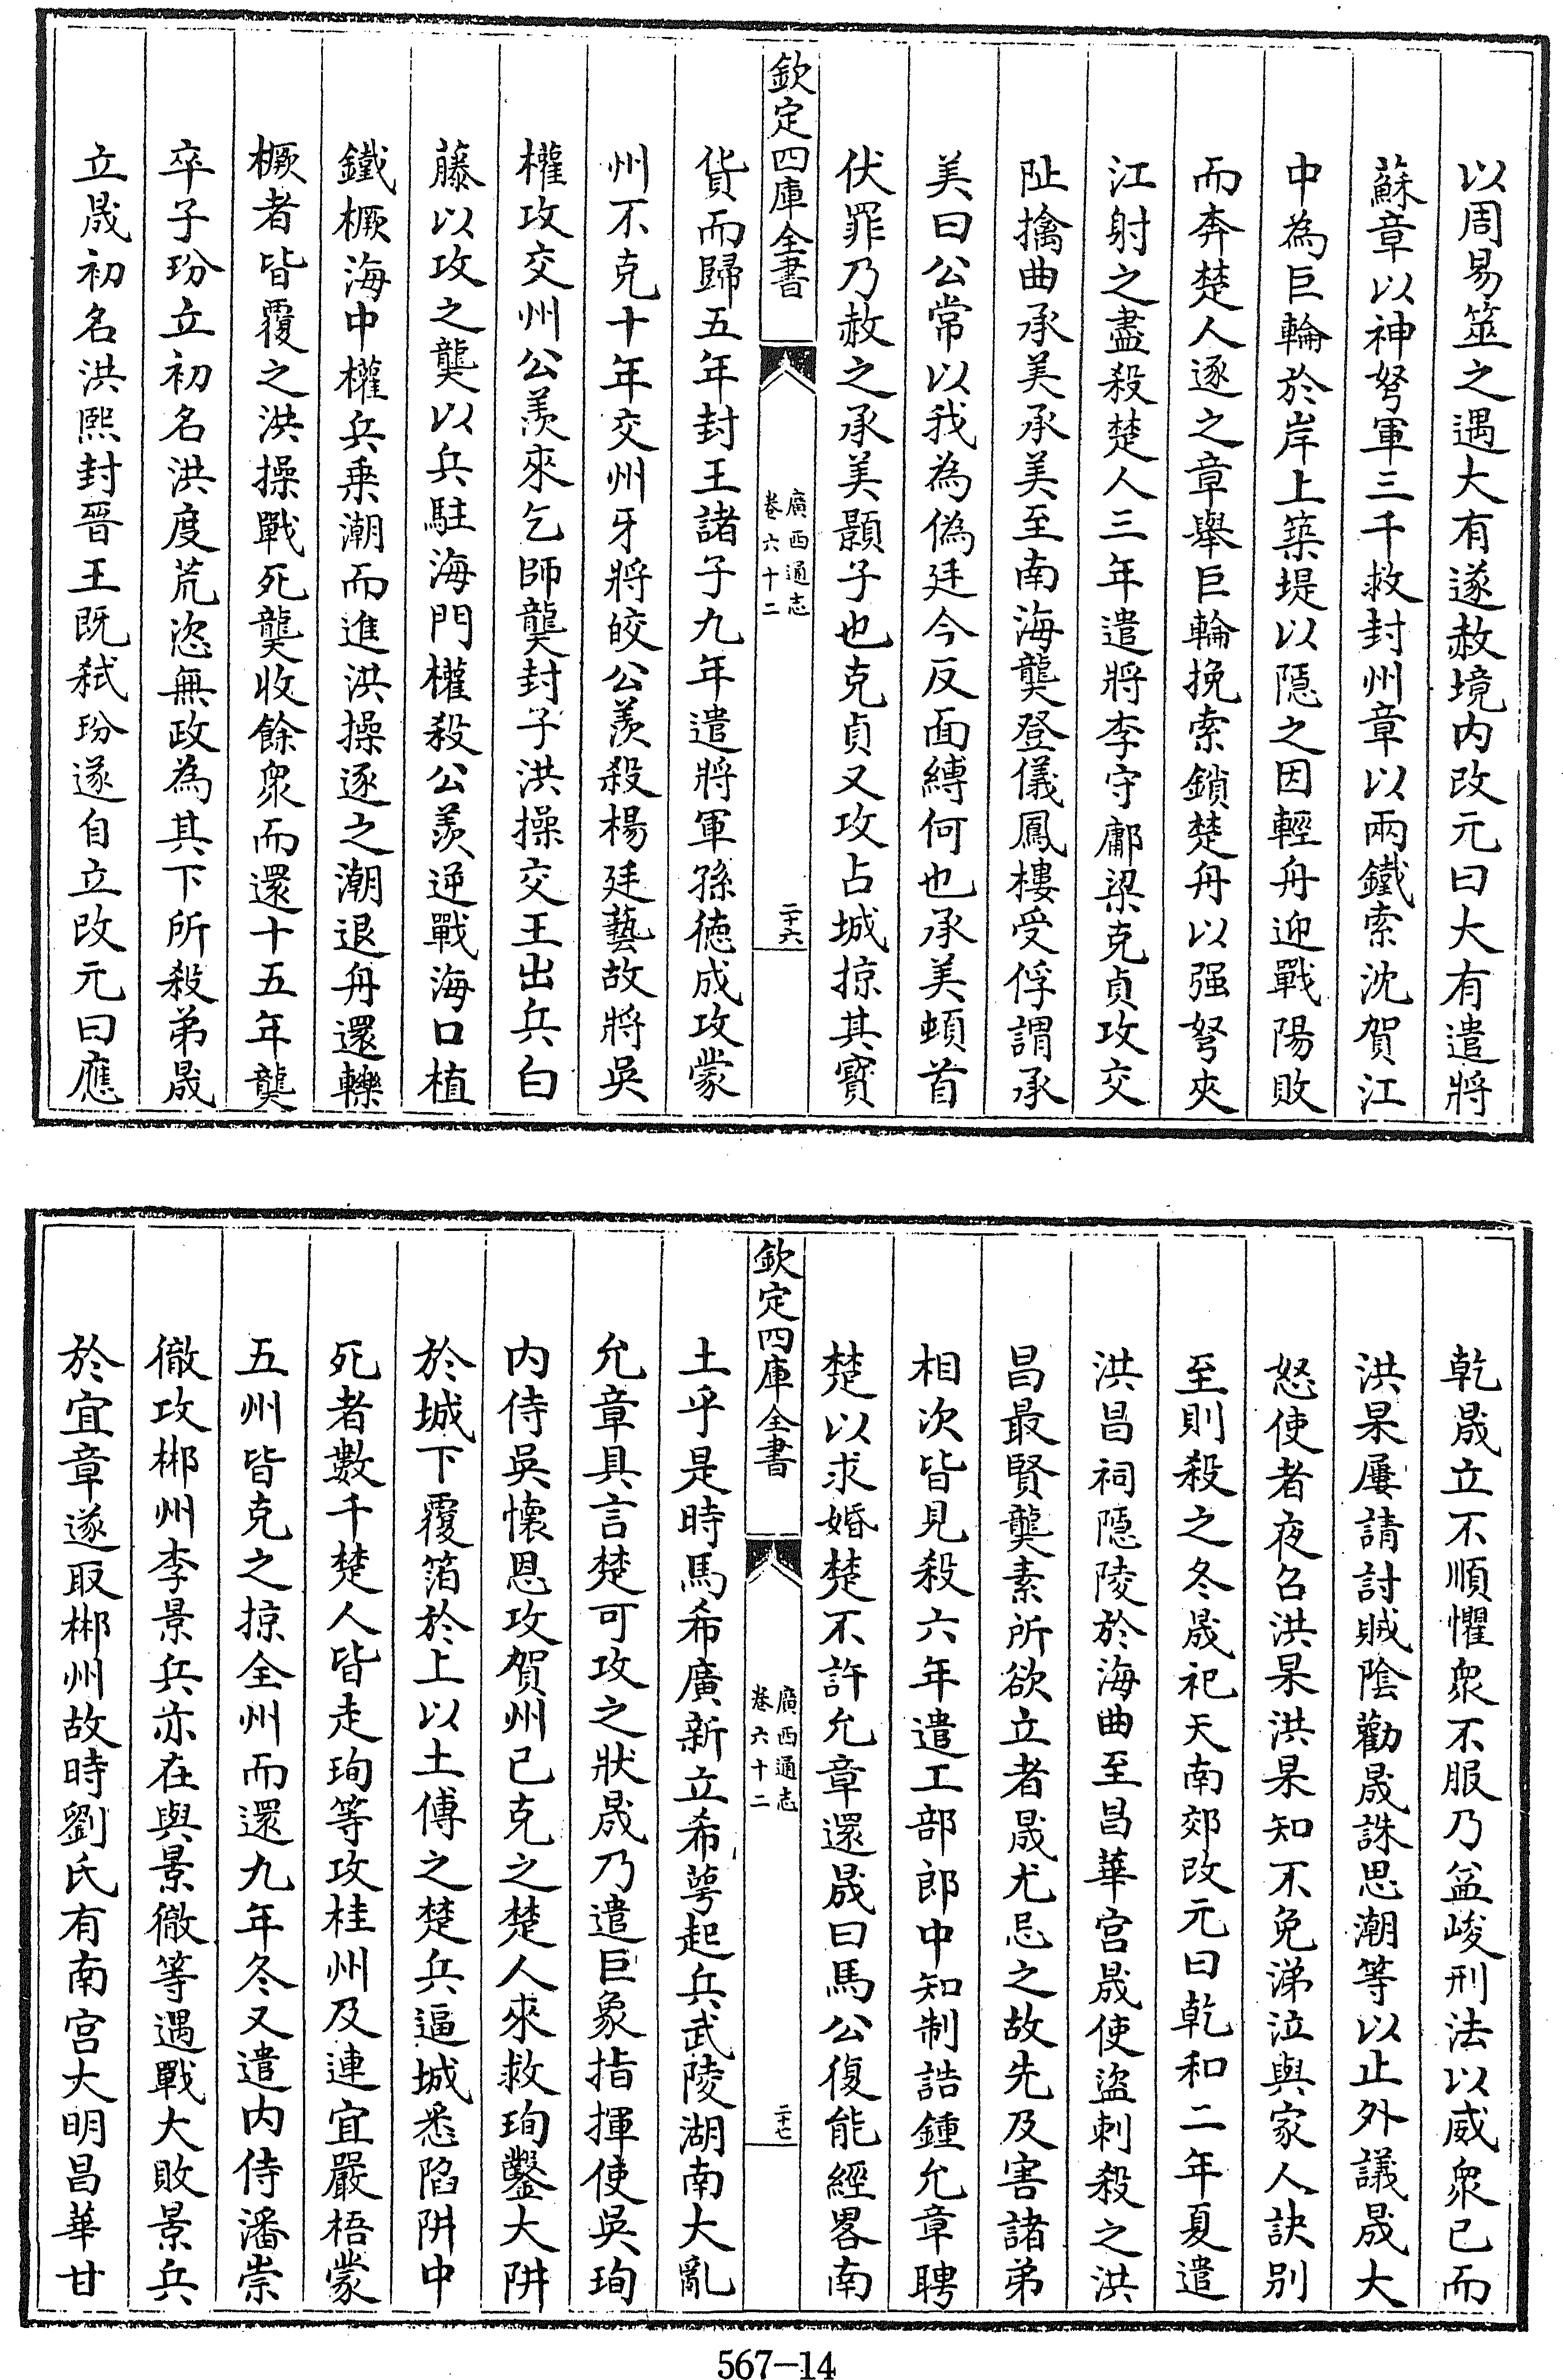 以周易筮之遇大有遂赦境内改元曰大有遣將
蘇章以神弩軍三千救封州章以兩鐵索沈賀江
中為巨輪於岸上築堤以隱之因輕舟迎戰陽敗
而奔楚人逐之章舉巨輪挽索鎖楚舟以强弩夾
江射之盡殺楚人三年遣將李守鄘梁克貞攻交
阯擒曲承美承美至南海龑登儀鳳樓受俘謂承
美曰公常以我為偽廷今反面縛何也承美頓首
伏罪乃赦之承美顥子也克貞又攻占城掠其寳
欽定四庫全書
廣西通志
卷六十二
二十六
貨而歸五年封王諸子九年遣將軍孫德成攻蒙
州不克十年交州牙將皎公羨殺楊廷藝故將吳
權攻交州公羨來乞師龑封子洪操交王出兵白
藤以攻之龑以兵駐海門權殺公羨逆戰海口植
鐵橛海中權兵乗潮而進洪操逐之潮退舟還轢
橛者皆覆之洪操戰死龑收餘衆而還十五年龑
卒子玢立初名洪度荒恣無政為其下所殺弟晟
立晟初名洪熙封晉王既弑玢遂自立改元曰應
乾晟立不順懼衆不服乃益峻刑法以威衆已而
洪杲屢請討賊陰勸晟誅思潮等以止外議晟大
怒使者夜召洪杲洪杲知不免涕泣與家人訣别
至則殺之冬晟祀天南郊改元曰乾和二年夏遣
洪昌祠隱陵於海曲至昌華宫晟使盜刺殺之洪
昌最賢龑素所欲立者晟尤忌之故先及害諸弟
相次皆見殺六年遣工部郎中知制誥鍾允章聘
楚以求婚楚不許允章還晟曰馬公復能經畧南
欽定四庫全書
廣西通志
卷六十二
二十七
土乎是時馬希廣新立希萼起兵武陵湖南大亂
允章具言楚可攻之狀晟乃遣巨象指揮使吳珣
内侍吳懷恩攻賀州已克之楚人來救珣鑿大阱
於城下覆箔於上以土傅之楚兵逼城悉陷阱中
死者數千楚人皆走珣等攻桂州及連宜嚴梧蒙
五州皆克之掠全州而還九年冬又遣内侍潘崇
徹攻郴州李景兵亦在與景徹等遇戰大敗景兵
於宜章遂取郴州故時劉氏有南宫大明昌華甘
567-14